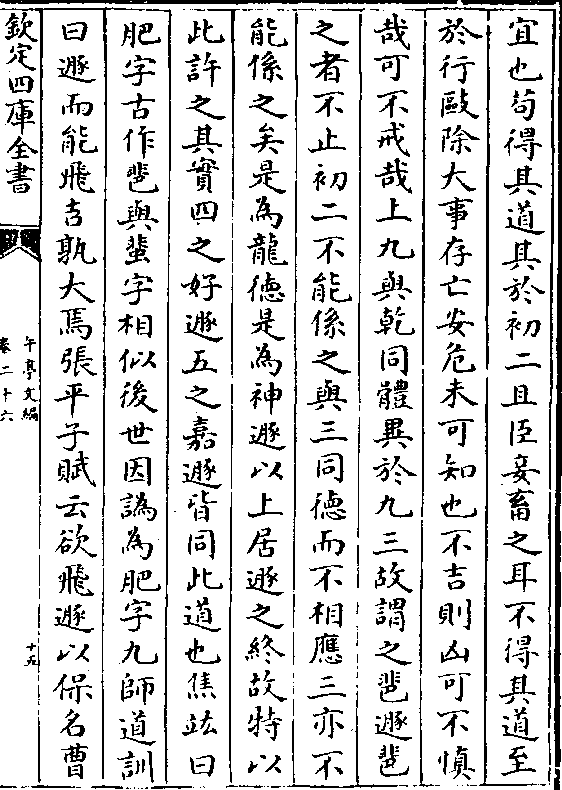 宜也苟得其道其於初二且臣妾畜之耳不得其道至
於行敺除大事存亡安危未可知也不吉則凶可不慎
哉可不戒哉上九與乾同體異於九三故謂之𦐂遯𦐂
之者不止初二不能係之與三同德而不相應三亦不
能係之矣是為龍德是為神遯以上居遯之終故特以
此許之其實四之好遯五之嘉遯皆同此道也焦竑曰
肥字古作𦐂與蜚字相似後世因譌為肥字九師道訓
曰遯而能飛吉孰大焉張平子賦云欲飛遯以保名曹
欽定四庫全書
午亭文編
卷二十六
十五